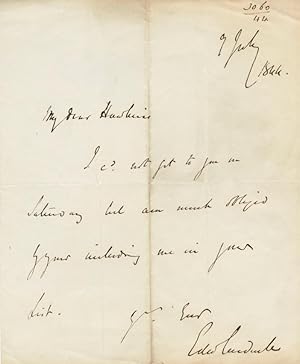 3060
44
9 July
1844.
My dear Hawkins
I cd. not get to you on
Saturday but am much obliged
by your including me in your
list.
Yrs. Ever